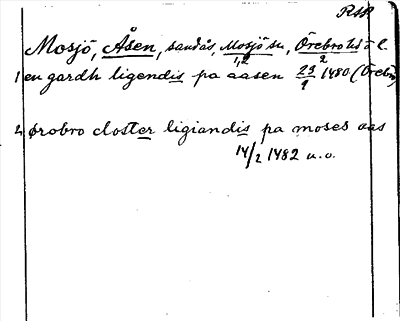 RAP
Mosjö, Åsen, sandås, Mosjö sn, Örebro hd ö l.
1,2 2
1 en gardh ligendis pa aasen 23/9 1480 (Örebro)
2 ørobro closter ligiandis pa moses aas
14/2 1482 u.o.